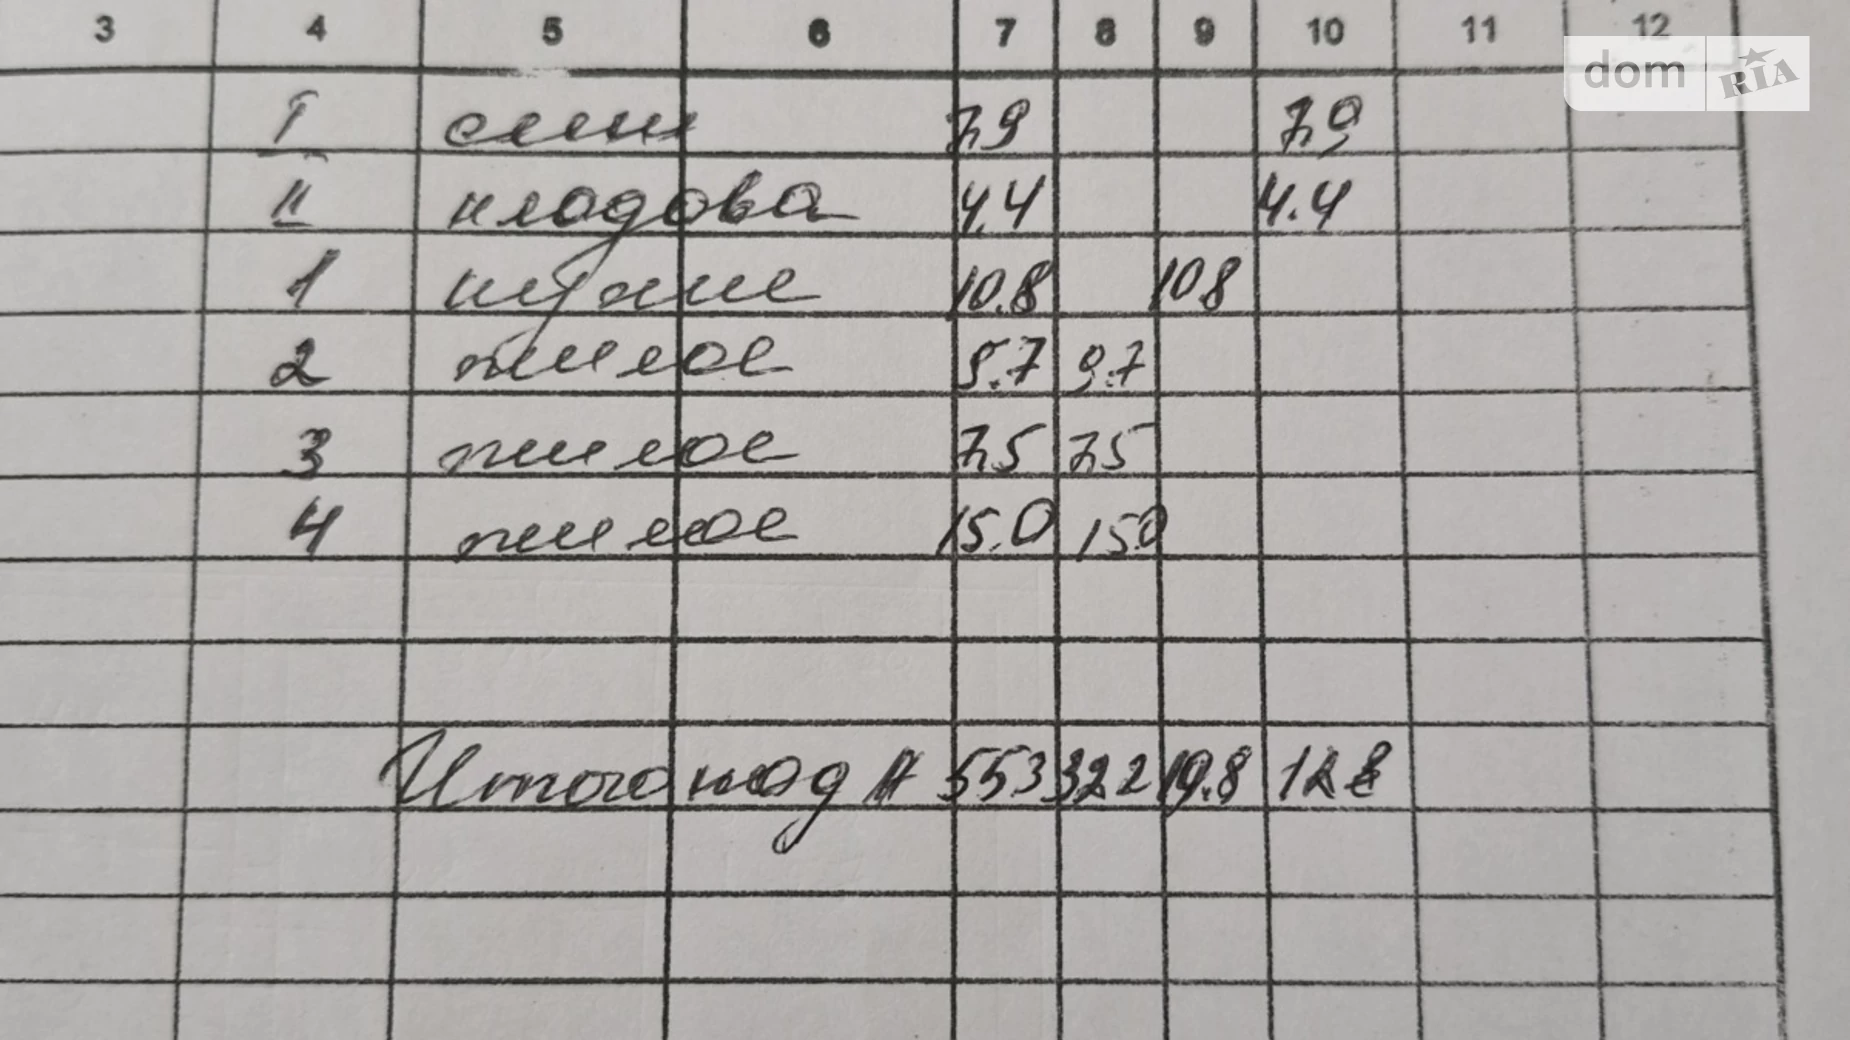 3 4 5 6 7 8 9 10 11 12
dom RIA
I сени 7,9 7,9
II кладова 4.4 4.4
1 кухне 10.8 10.8
2 жилое 9.7 9.7
3 жилое 7,5 7,5
4 жилое 15.0 15.0
Итого под А 553 322 10.8 12 8